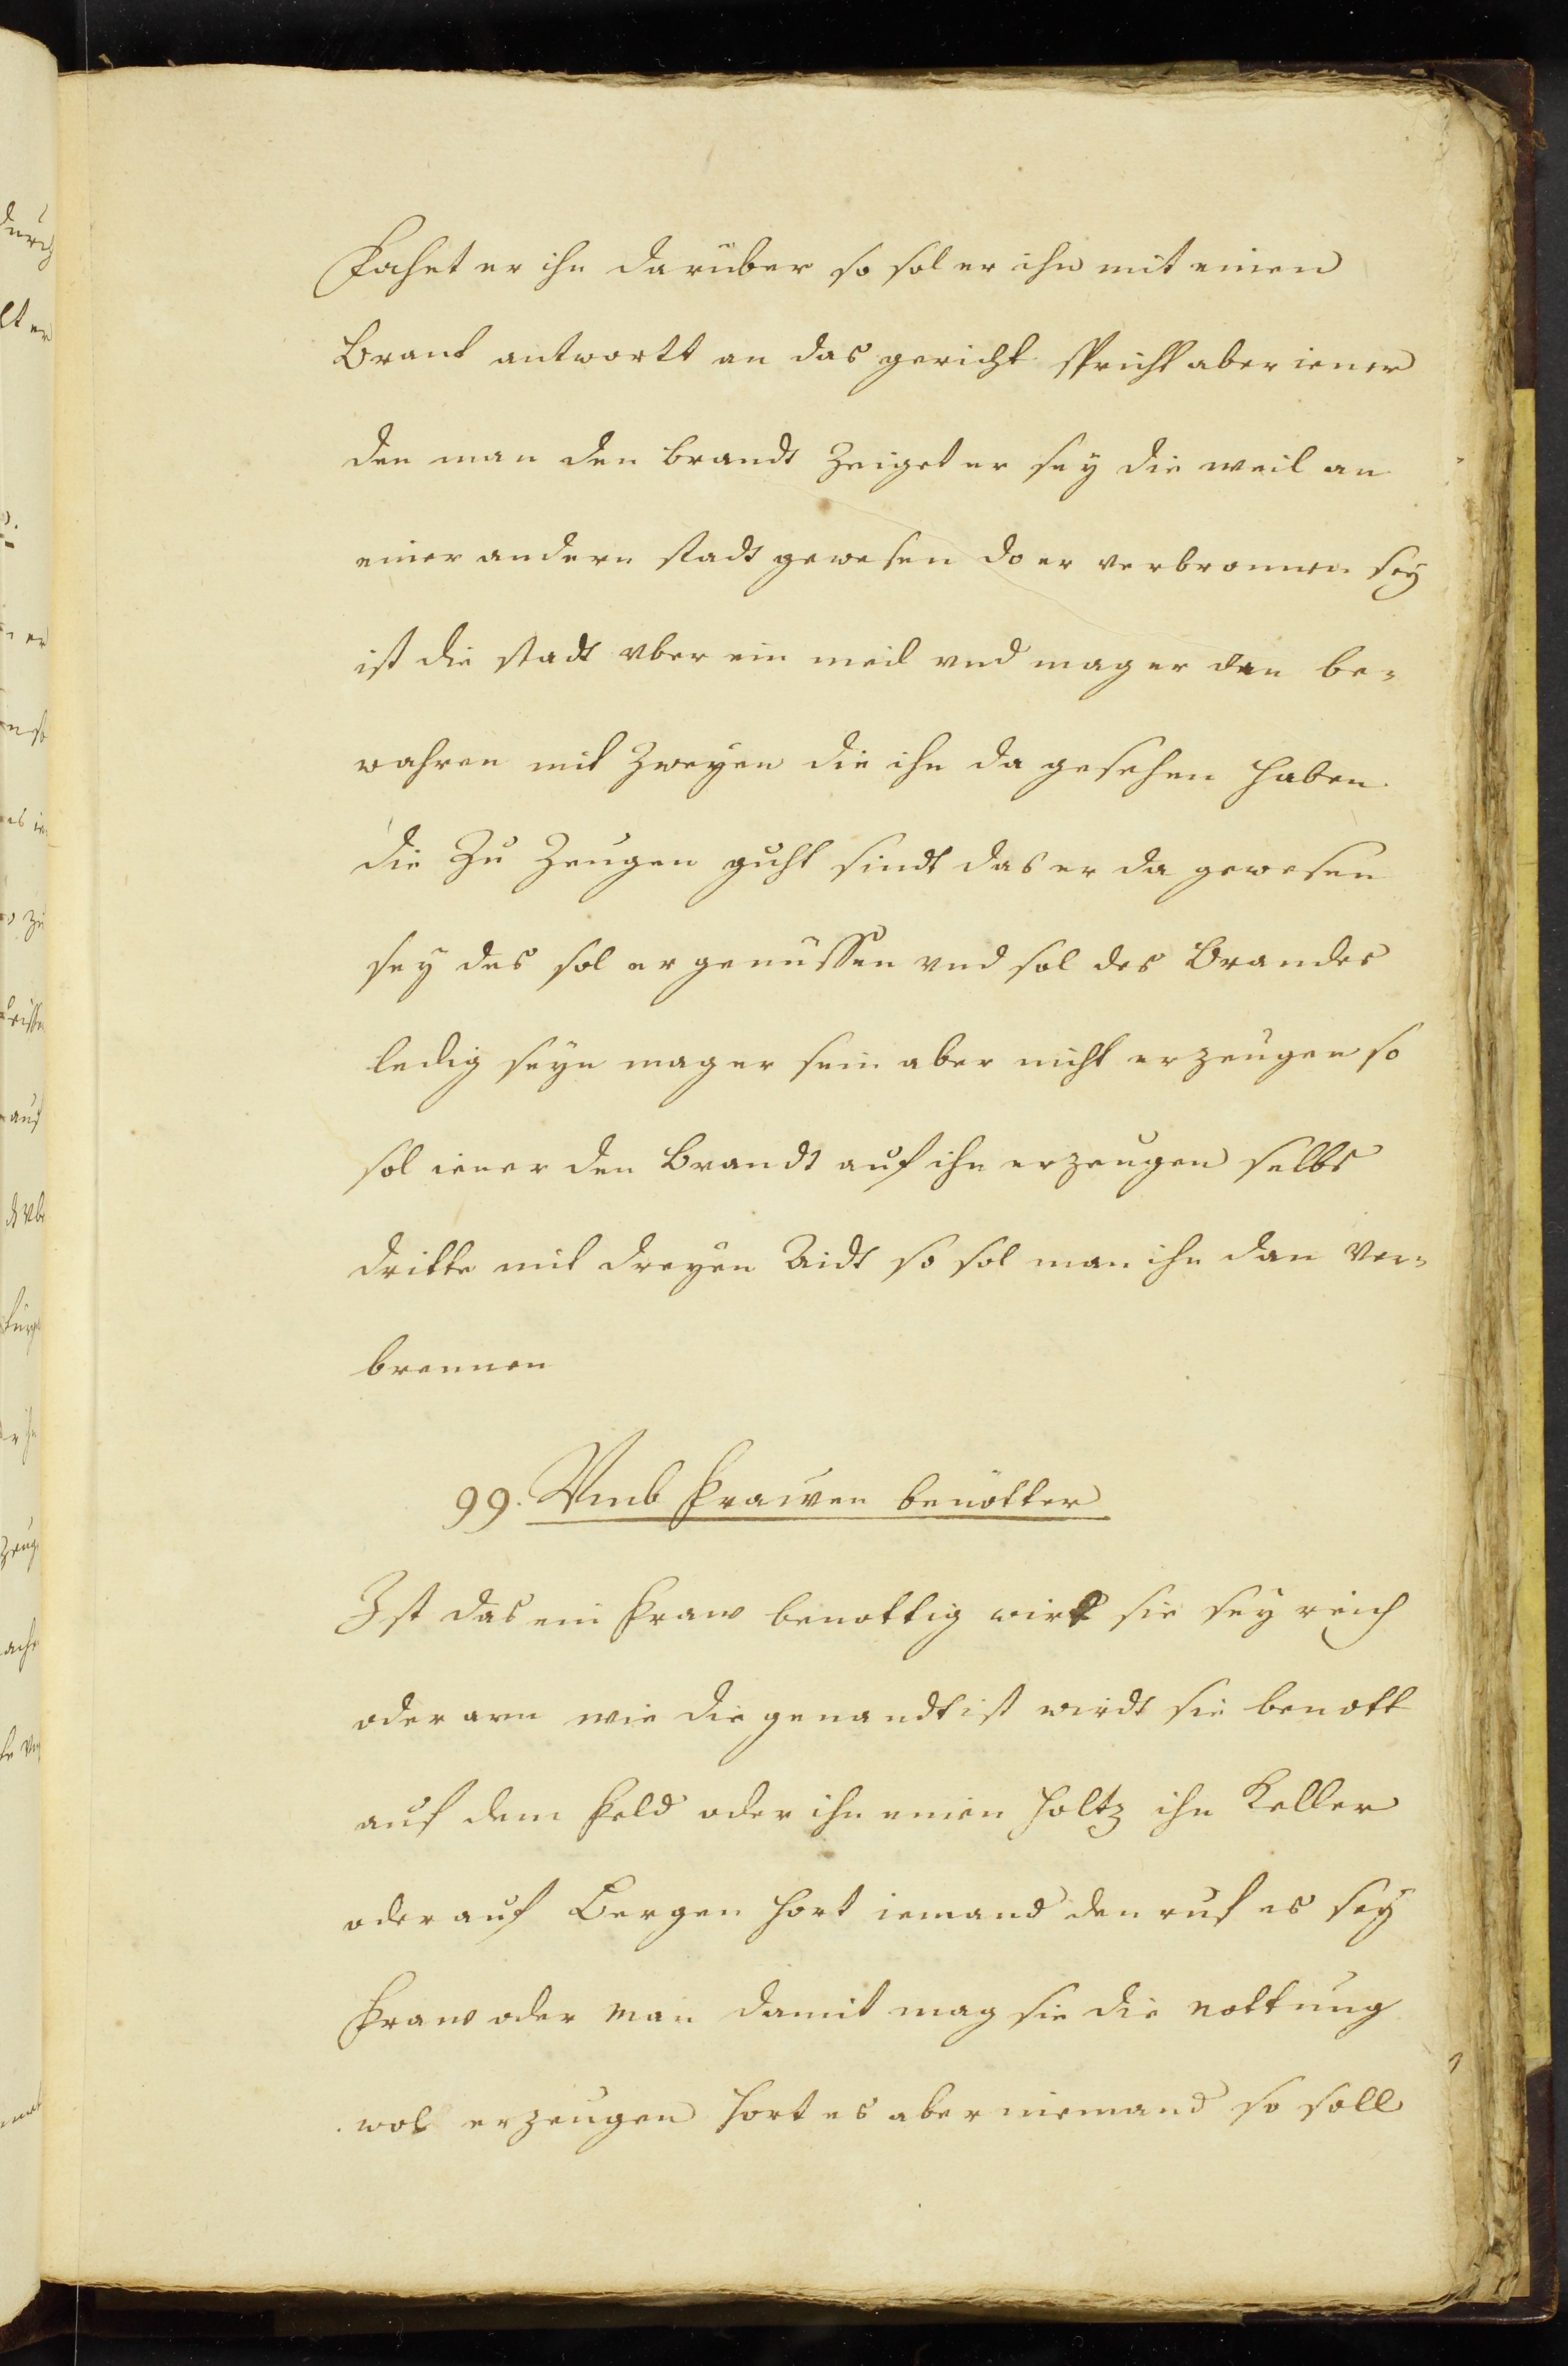 Fahet er ihn darüber so sol er ihn mit einen
Brant antwortt an das gericht spricht aber iener
den man den brandt Zeiget er sey die weil an
einer andern stadt gewesen do er verbronnen sey
ist die stadt vber ein meil vnd mag er den be-
wahren mit Zweyen die ihn da gesehen haben.
die Zu Zeugen guht sindt das er da gewesen
sey des sol er genüssen vnd sol des Brandes
ledig seyn mag er sein aber nicht erzeugen so
sol iener den Brandt auf ihn erzeugen selbs
dritte mit dreyen Aidt so sol man ihn dan ver-
brennen
99. Vmb Frawen benötter
Ist das ein Fraw benottig wirt sie sey reich
oder arm wie die genandt ist wirdt sie benott
auf dem Feld oder ihn einen Holtz ihn Keller
oder auf Bergen hort iemand den ruf es sey
Fraw oder man damit mag sie die nottung
wol erzeugen hort es aber niemand so soll